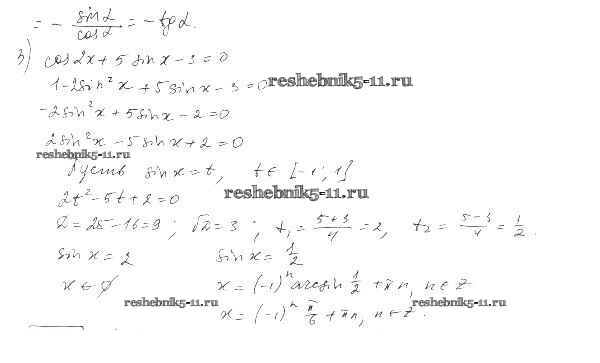 = - sin α / cos α = - tg α.
3) cos 2x + 5 sin x - 3 = 0
1 - 2sin² x + 5 sin x - 3 = 0
reshebnik5-11.ru
-2sin² x + 5 sin x - 2 = 0
2 sin² x - 5 sin x + 2 = 0
reshebnik5-11.ru
Пусть sin x = t, t ∈ [-1; 1]
reshebnik5-11.ru
2t² - 5t + 2 = 0
D = 25 - 16 = 9 ; √D = 3 ; t₁ = (5+3)/4 = 2, t₂ = (5-3)/4 = 1/2.
sin x = 2 sin x = 1/2
x ∈ ∅ x = (-1)ⁿ arcsin 1/2 + πn, n ∈ Z
reshebnik5-11.ru reshebnik5-11.ru
x = (-1)ⁿ π/6 + πn, n ∈ Z.